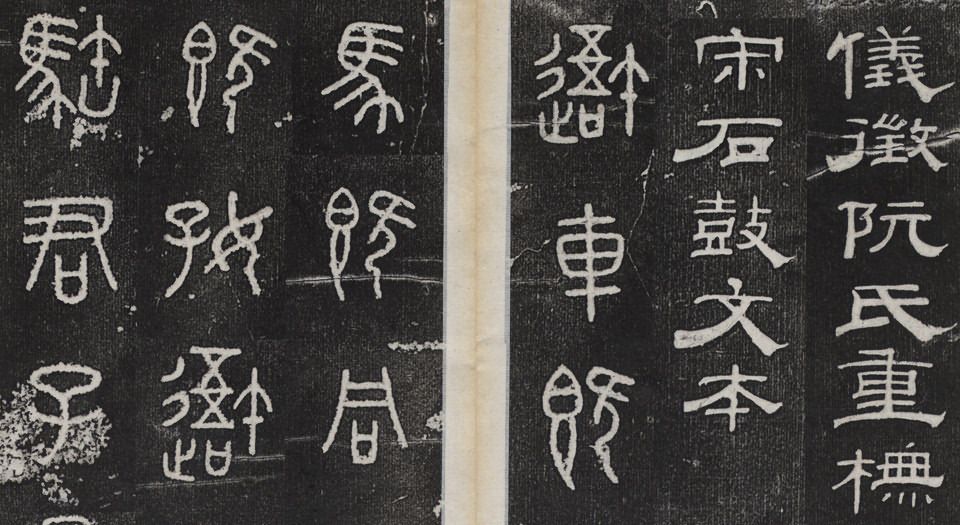 儀徵阮氏重橅
宋石鼓文本
䢒車既
馬既同
既好䢒
君子